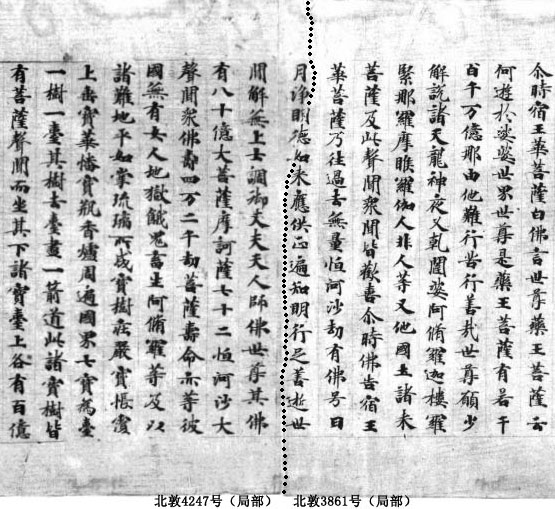 尒時宿王華菩薩白佛言世尊藥王菩薩云
何遊於娑婆世界世尊是藥王菩薩有若干
百千万億那由他難行苦行善哉世尊願少
解說諸天龍神夜叉乹闥婆阿脩羅迦樓羅
緊那羅摩睺羅伽人非人等又他國土諸来
菩薩及此聲聞衆聞皆歡喜尒時佛告宿王
華菩薩乃往過去無量恒河沙劫有佛号曰
月淨明德如来應供正遍知明行足善逝世
間解無上士調御丈夫天人師佛世尊其佛
有八十億大菩薩摩訶薩七十二恒河沙大
聲聞衆佛壽四万二千劫菩薩壽命亦等彼
國無有女人地獄餓鬼畜生阿脩羅等及以
諸難地平如掌琉璃所成寶樹莊嚴寶帳覆
上垂寶華幡寶瓶香爐周遍國界七寶為臺
一樹一臺其樹去臺盡一箭道此諸寶樹皆
有菩薩聲聞而坐其下諸寶臺上各有百億
北敦4247号（局部）
北敦3861号（局部）